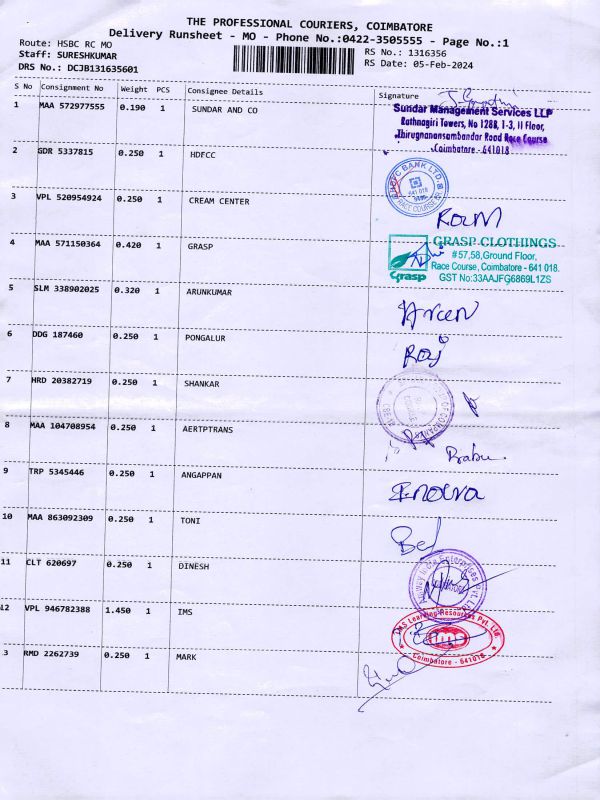 THE PROFESSIONAL COURIERS, COIMBATORE
Delivery Runsheet - MO - Phone No.:0422-3505555 - Page No.:1
Route: HSBC RC MO
RS No.: 1316356
Staff: SURESHKUMAR
RS Date: 05-Feb-2024
DRS No.: DCJB131635601
S No Consignment No Weight PCS Consignee Details Signature
1 MAA 572977555 0.190 1 SUNDAR AND CO
Sundar Management Services LLP
Rathnagiri Towers, No 128B, 1-3, II Floor,
Thirugnanansambandar Road Race Course
Coimbatore - 641018
2 GDR 5337815 0.250 1 HDFCC
HDFC BANK LTD.
641 018
RACE COURSE
3 VPL 520954924 0.250 1 CREAM CENTER
Ram
4 MAA 571150364 0.420 1 GRASP
GRASP CLOTHINGS
#57,58,Ground Floor,
Race Course, Coimbatore - 641 018.
Grasp GST No:33AAJFG6869L1ZS
5 SLM 338902025 0.320 1 ARUNKUMAR
Arun
6 DDG 187460 0.250 1 PONGALUR
Raj
7 HRD 20382719 0.250 1 SHANKAR
8 MAA 104708954 0.250 1 AERTPTRANS
Babu
9 TRP 5345446 0.250 1 ANGAPPAN
10 MAA 863092309 0.250 1 TONI
11 CLT 620697 0.250 1 DINESH
12 VPL 946782388 1.450 1 IMS
IMS Learning Resources Pvt. Ltd
Coimbatore - 641018
3 RMD 2262739 0.250 1 MARK